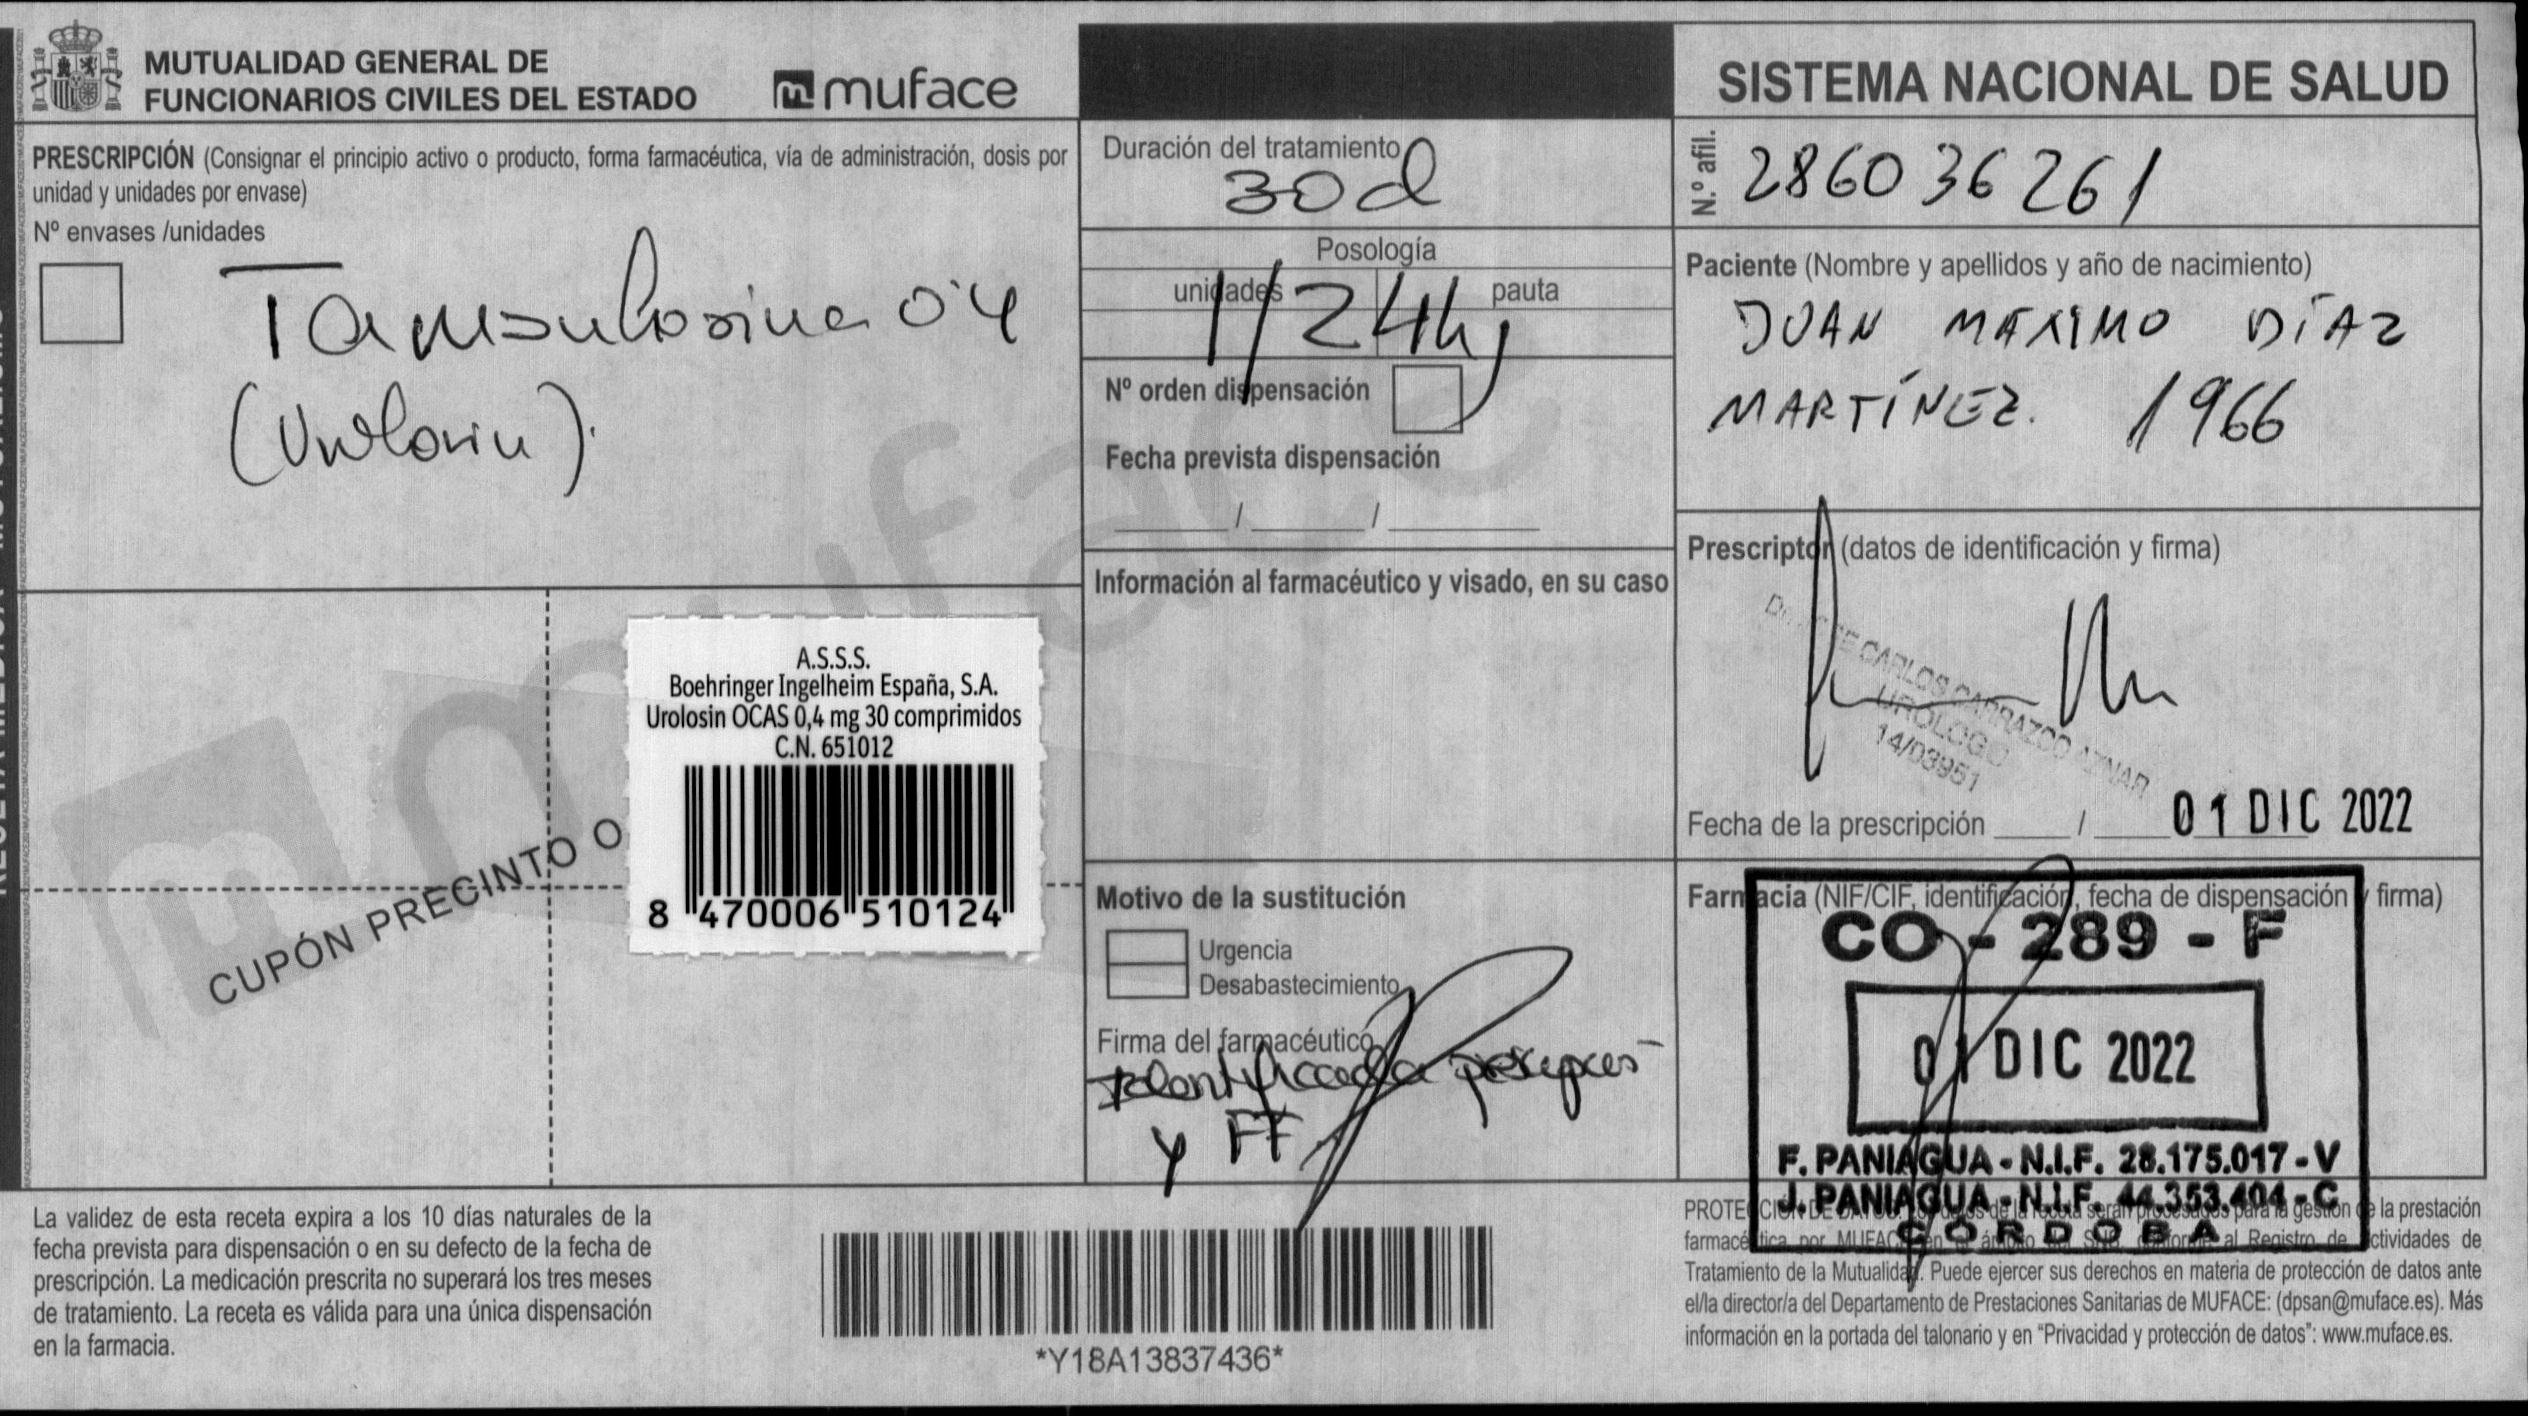 MUTUALIDAD GENERAL DE
FUNCIONARIOS CIVILES DEL ESTADO
muface
SISTEMA NACIONAL DE SALUD
PRESCRIPCIÓN (Consignar el principio activo o producto, forma farmacéutica, vía de administración, dosis por
unidad y unidades por envase)
Nº envases /unidades
Tamsulosina 0'4
(Urolosin).
Duración del tratamiento
30 d
Posología
unidades pauta
1/24h
Nº orden dispensación
Fecha prevista dispensación
/ /
Información al farmacéutico y visado, en su caso
N.º afil.
286036261
Paciente (Nombre y apellidos y año de nacimiento)
JUAN MAXIMO DÍAZ
MARTÍNEZ. 1966
Prescriptor (datos de identificación y firma)
CARLOS CARRAZCO AZNAR
UROLOGIO
14/03951
Fecha de la prescripción / 01 DIC 2022
A.S.S.S.
Boehringer Ingelheim España, S.A.
Urolosin OCAS 0,4 mg 30 comprimidos
C.N. 651012
8 470006 510124
CUPÓN PRECINTO O
muface
Motivo de la sustitución
Urgencia
Desabastecimiento
Firma del farmacéutico
y FF
Farmacia (NIF/CIF, identificación, fecha de dispensación y firma)
CO - 289 - F
01 DIC 2022
F. PANIAGUA - N.I.F. 28.175.017 - V
J. PANIAGUA - N.I.F. 44.353.404 - C
CÓRDOBA
La validez de esta receta expira a los 10 días naturales de la
fecha prevista para dispensación o en su defecto de la fecha de
prescripción. La medicación prescrita no superará los tres meses
de tratamiento. La receta es válida para una única dispensación
en la farmacia.
*Y18A13837436*
PROTECCIÓN DE DATOS: Los datos de la receta serán procesados para la gestión de la prestación
farmacéutica por MUFACE en el ámbito del SNS, conforme al Registro de Actividades de
Tratamiento de la Mutualidad. Puede ejercer sus derechos en materia de protección de datos ante
el/la director/a del Departamento de Prestaciones Sanitarias de MUFACE: (dpsan@muface.es). Más
información en la portada del talonario y en "Privacidad y protección de datos": www.muface.es.